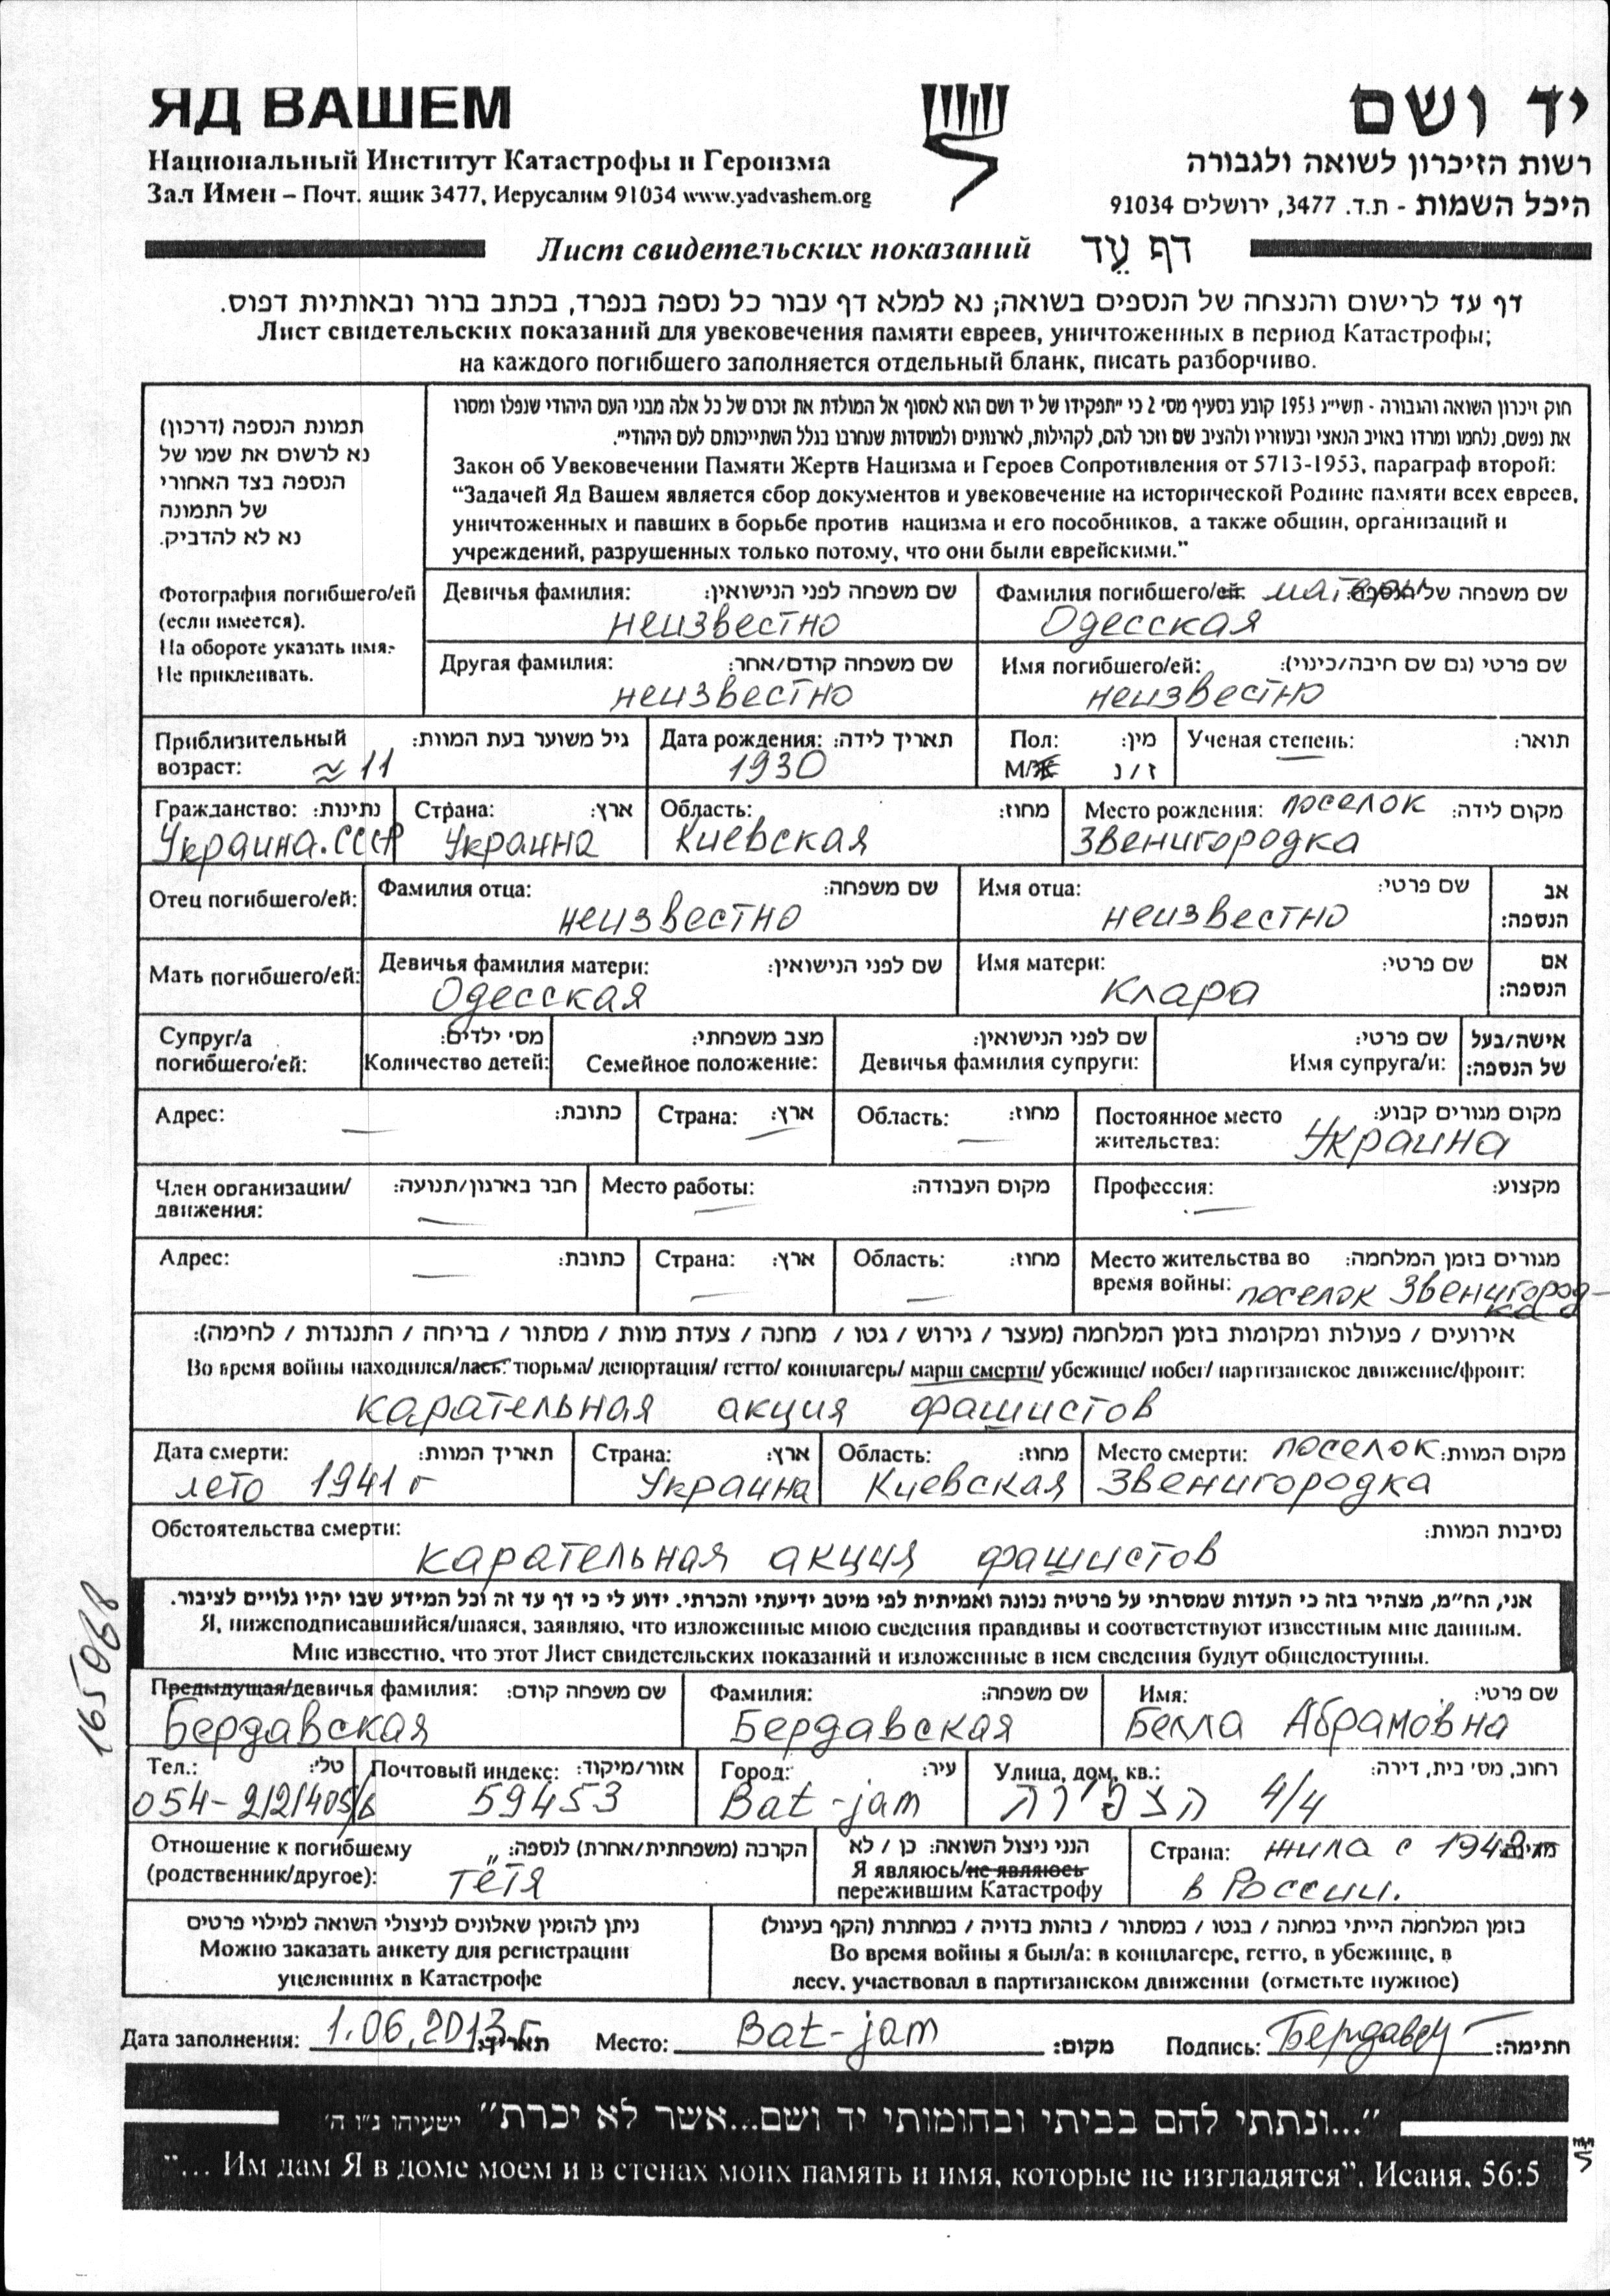 ЯД ВАШЕМ
יד ושם
Национальный Институт Катастрофы и Героизма
רשות הזיכרון לשואה ולגבורה
Зал Имен – Почт. ящик 3477, Иерусалим 91034 www.yadvashem.org
היכל השמות - ת.ד. 3477, ירושלים 91034
Лист свидетельских показаний דף עֵד
דף עד לרישום והנצחה של הנספים בשואה; נא למלא דף עבור כל נספה בנפרד, בכתב ברור ובאותיות דפוס.
Лист свидетельских показаний для увековечения памяти евреев, уничтоженных в период Катастрофы;
на каждого погибшего заполняется отдельный бланк, писать разборчиво.
תמונת הנספה (דרכון)
נא לרשום את שמו של
הנספה בצד האחורי
של התמונה
נא לא להדביק.
Фотография погибшего/ей
(если имеется).
На обороте указать имя.
Не приклеивать.
חוק זיכרון השואה והגבורה - תשי"ג 1953 קובע בסעיף מס' 2 כי "תפקידו של יד ושם הוא לאסוף אל המולדת את זכרם של כל אלה מבני העם היהודי שנפלו ומסרו
את נפשם, נלחמו ומרדו באויב הנאצי ובעוזריו ולהציב שם וזכר להם, לקהילות, לארגונים ולמוסדות שנחרבו בגלל השתייכותם לעם היהודי".
Закон об Увековечении Памяти Жертв Нацизма и Героев Сопротивления от 5713-1953, параграф второй:
“Задачей Яд Вашем является сбор документов и увековечение на исторической Родине памяти всех евреев,
уничтоженных и павших в борьбе против нацизма и его пособников, а также общин, организаций и
учреждений, разрушенных только потому, что они были еврейскими.”
Девичья фамилия: שם משפחה לפני הנישואין:
неизвестно
Фамилия погибшего/ей: матери שם משפחה של הנספה:
Одесская
Другая фамилия: שם משפחה קודם/אחר:
неизвестно
Имя погибшего/ей: שם פרטי (גם שם חיבה/כינוי):
неизвестно
Приблизительный возраст: גיל משוער בעת המוות:
≈ 11
Дата рождения: תאריך לידה:
1930
Пол: מין:
М/Ж ז / נ
Ученая степень: תואר:
Гражданство: נתינות:
Украина.СССР
Страна: ארץ:
Украина
Область: מחוז:
Киевская
Место рождения: поселок מקום לידה:
Звенигородка
Отец погибшего/ей:
Фамилия отца: שם משפחה:
неизвестно
Имя отца: שם פרטי:
неизвестно
אב הנספה:
Мать погибшего/ей:
Девичья фамилия матери: שם לפני הנישואין:
Одесская
Имя матери: שם פרטי:
Клара
אם הנספה:
Супруг/а погибшего/ей:
מסי ילדים:
Количество детей:
מצב משפחתי:
Семейное положение:
שם לפני הנישואין:
Девичья фамилия супруги:
שם פרטי:
Имя супруга/и:
אישה/בעל של הנספה:
Адрес: כתובת: —
Страна: ארץ: —
Область: מחוז: —
Постоянное место жительства: מקום מגורים קבוע:
Украина
Член организации/движения: חבר בארגון/תנועה: —
Место работы: מקום העבודה: —
Профессия: מקצוע: —
Адрес: כתובת: —
Страна: ארץ: —
Область: מחוז: —
Место жительства во время войны: מגורים בזמן המלחמה:
поселок Звенигород-
ка
אירועים / פעולות ומקומות בזמן המלחמה (מעצר / גירוש / גטו / מחנה / צעדת מוות / מסתור / בריחה / התנגדות / לחימה):
Во время войны находился/лась: тюрьма/ депортация/ гетто/ концлагерь/ марш смерти/ убежище/ побег/ партизанское движение/фронт:
карательная акция фашистов
Дата смерти: תאריך המוות:
лето 1941 г
Страна: ארץ:
Украина
Область: מחוז:
Киевская
Место смерти: поселок מקום המוות:
Звенигородка
Обстоятельства смерти: נסיבות המוות:
карательная акция фашистов
אני, הח"מ, מצהיר בזה כי העדות שמסרתי על פרטיה נכונה ואמיתית לפי מיטב ידיעתי והכרתי. ידוע לי כי דף עד זה וכל המידע שבו יהיו גלויים לציבור.
Я, нижеподписавшийся/шаяся, заявляю, что изложенные мною сведения правдивы и соответствуют известным мне данным.
Мне известно, что этот Лист свидетельских показаний и изложенные в нем сведения будут общедоступны.
165068
Предыдущая/девичья фамилия: שם משפחה קודם:
Бердавская
Фамилия: שם משפחה:
Бердавская
Имя: שם פרטי:
Белла Абрамовна
Тел.: טלי:
Почтовый индекс: אזור/מיקוד:
59453
Город: עיר:
Bat-jam
Улица, дом, кв.: רחוב, מסי בית, דירה:
הצפירה 4/4
Отношение к погибшему הקרבה (משפחתית/אחרת) לנספה:
(родственник/другое): тётя
הנני ניצול השואה: כן / לא
Я являюсь/не являюсь
пережившим Катастрофу
Страна: жила с
в России.
ניתן להזמין שאלונים לניצולי השואה למילוי פרטים
Можно заказать анкету для регистрации
уцелевших в Катастрофе
בזמן המלחמה הייתי במחנה / בגטו / במסתור / בזהות בדויה / במחתרת (הקף בעיגול)
Во время войны я был/а: в концлагере, гетто, в убежище, в
лесу, участвовал в партизанском движении (отметьте нужное)
Дата заполнения: 1.06.2013г תאריך: Место: Bat-jam מקום: Подпись: חתימה:
"...ונתתי להם בביתי ובחומותי יד ושם...אשר לא יכרת" ישעיהו נ"ו ה'
“... Им дам Я в доме моем и в стенах моих память и имя, которые не изгладятся”. Исаия, 56:5